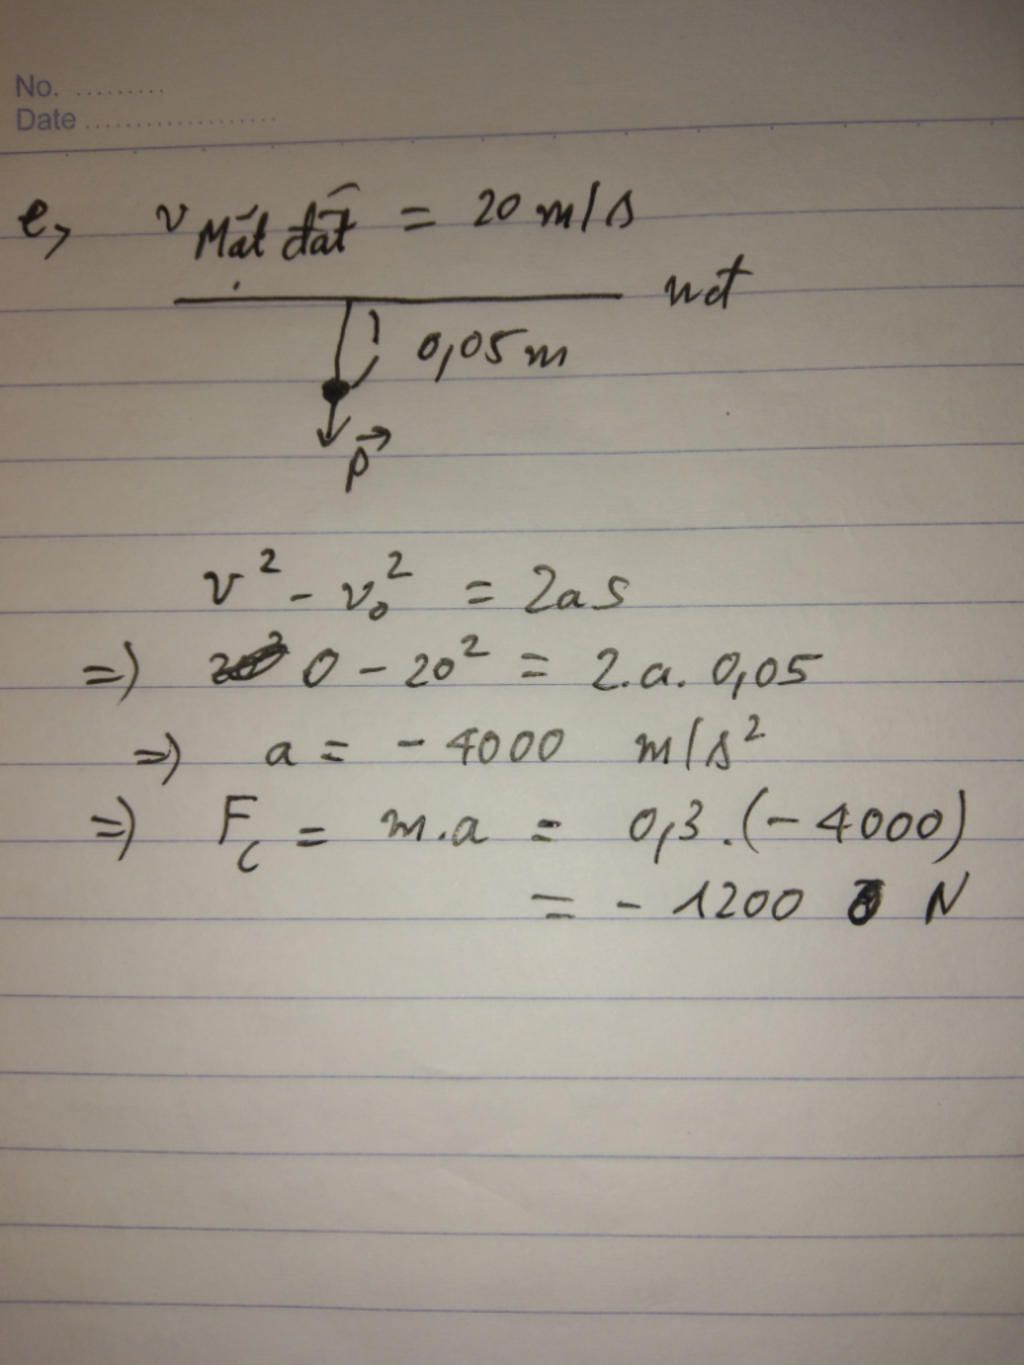 No. .........
Date ...................
e, v Mặt đất = 20 m/s
mđ
0,05 m
P
v² - v₀² = 2as
=) 0 - 20² = 2.a. 0,05
=) a = - 4000 m/s²
=) Fc = m.a = 0,3.(-4000)
= - 1200 N